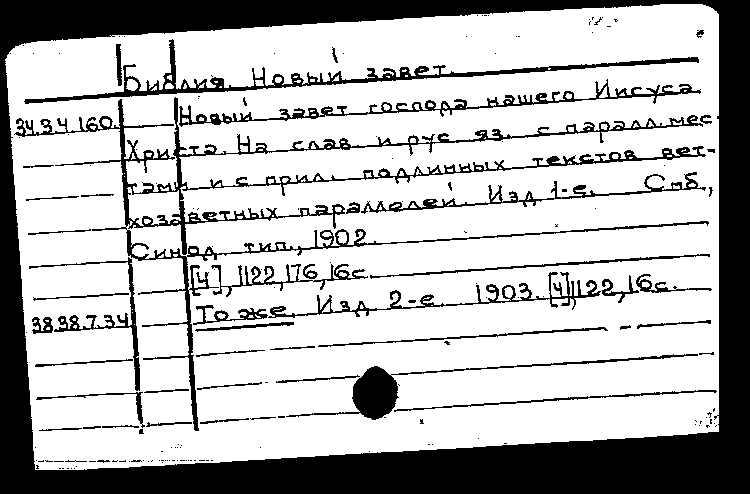 Библия. Новый завет.
34.34.160. Новый завет господа нашего Иисуса
Христа. На слав. и рус. яз. с паралл. мес-
тами и с прил. подлинных текстов вет-
хозаветных параллелей. Изд 1-е. Спб.,
Синод. тип., 1902.
[4], 1122, 176, 16с.
38.38.7.34 То же. Изд 2-е. 1903. [4], 1122, 16с.